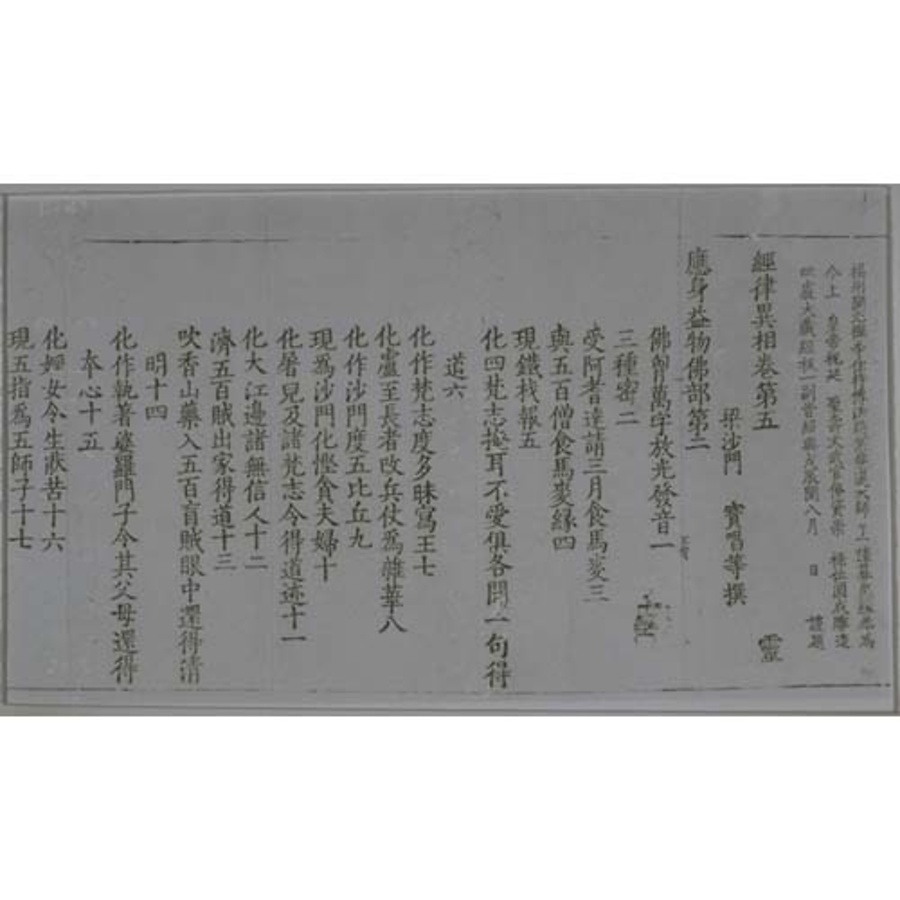 今上 皇帝祝延 聖壽文武官僚資崇 祿位圓成雕造
毗盧大藏經板一副昔紹興戊辰閏八月 日 謹題
經律異相卷第五 靈
梁沙門 寶唱等撰
應身益物佛部第二
佛胷萬字放光發音一
三種密二
受阿耆達請三月食馬麥三
與五百僧食馬麥緣四
現鐵杙報五
化四梵志掩耳不受俱各聞一句得
道六
化作梵志度多昧寫王七
化盧至長者改兵仗爲雜華八
化作沙門度五比丘九
現爲沙門化慳貪夫婦十
化屠兒及諸梵志令得道迹十一
化大江邊諸無信人十二
濟五百賊出家得道十三
吹香山藥入五百盲賊眼中還得清
明十四
化作執著婆羅門子令其父母還得
本心十五
化婬女令生猒苦十六
現五指爲五師子十七